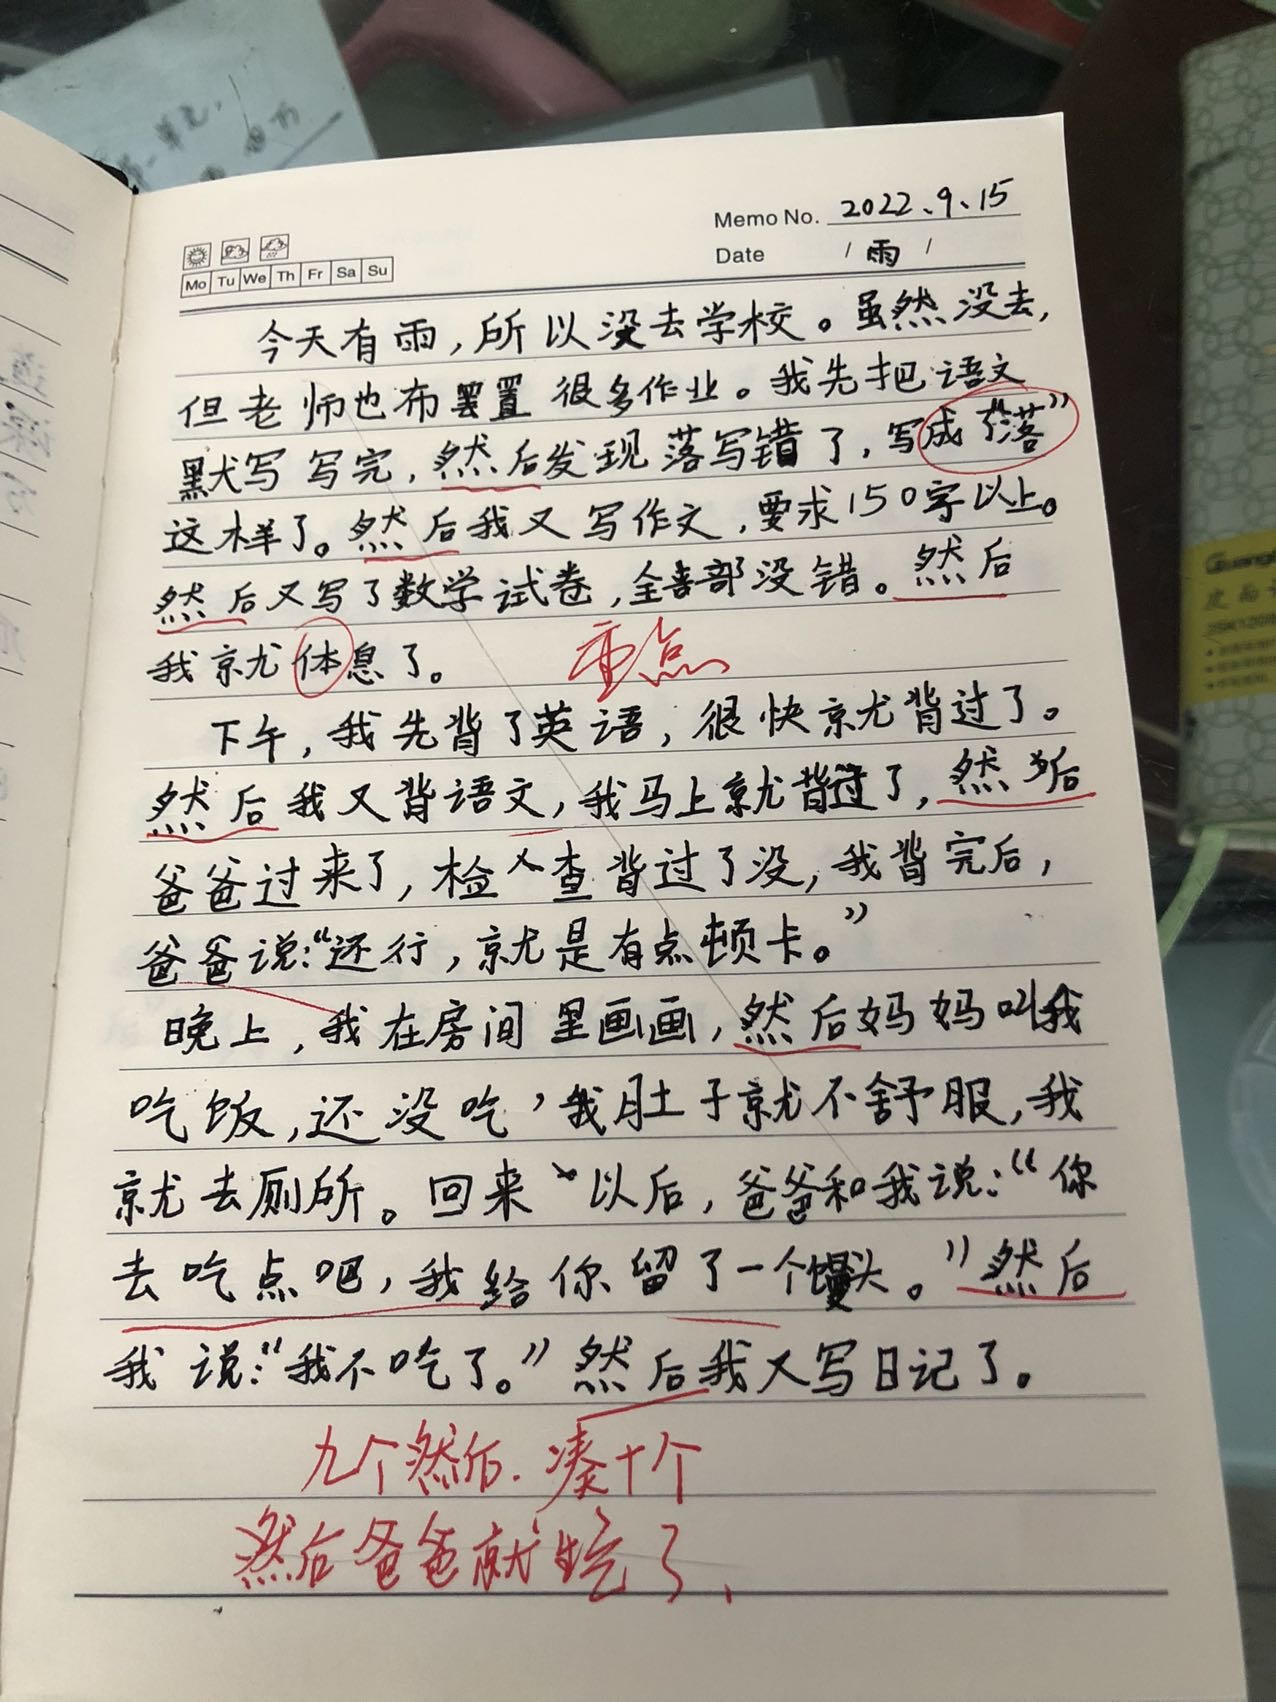 Memo No. 2022、9、15
Mo Tu We Th Fr Sa Su
Date / 雨 /
今天有雨,所以没去学校。虽然没去,
但老师也布置很多作业。我先把语文
默写写完,然后发现落写错了,写成了“落”
这样了。然后我又写作文,要求150字以上。
然后又写了数学试卷,全部没错。然后
我就体息了。
重点
下午,我先背了英语,很快就背过了。
然后我又背语文,我马上就背过了,然后
爸爸过来了,检查背过了没,我背完后,
爸爸说:“还行,就是有点顿卡。”
晚上,我在房间里画画,然后妈妈叫我
吃饭,还没吃,我肚子就不舒服,我
就去厕所。回来以后,爸爸和我说:“你
去吃点吧,我给你留了一个馒头。”然后
我说:“我不吃了。”然后我又写日记了。
九个然后.凑十个
然后爸爸就
了、
Guang